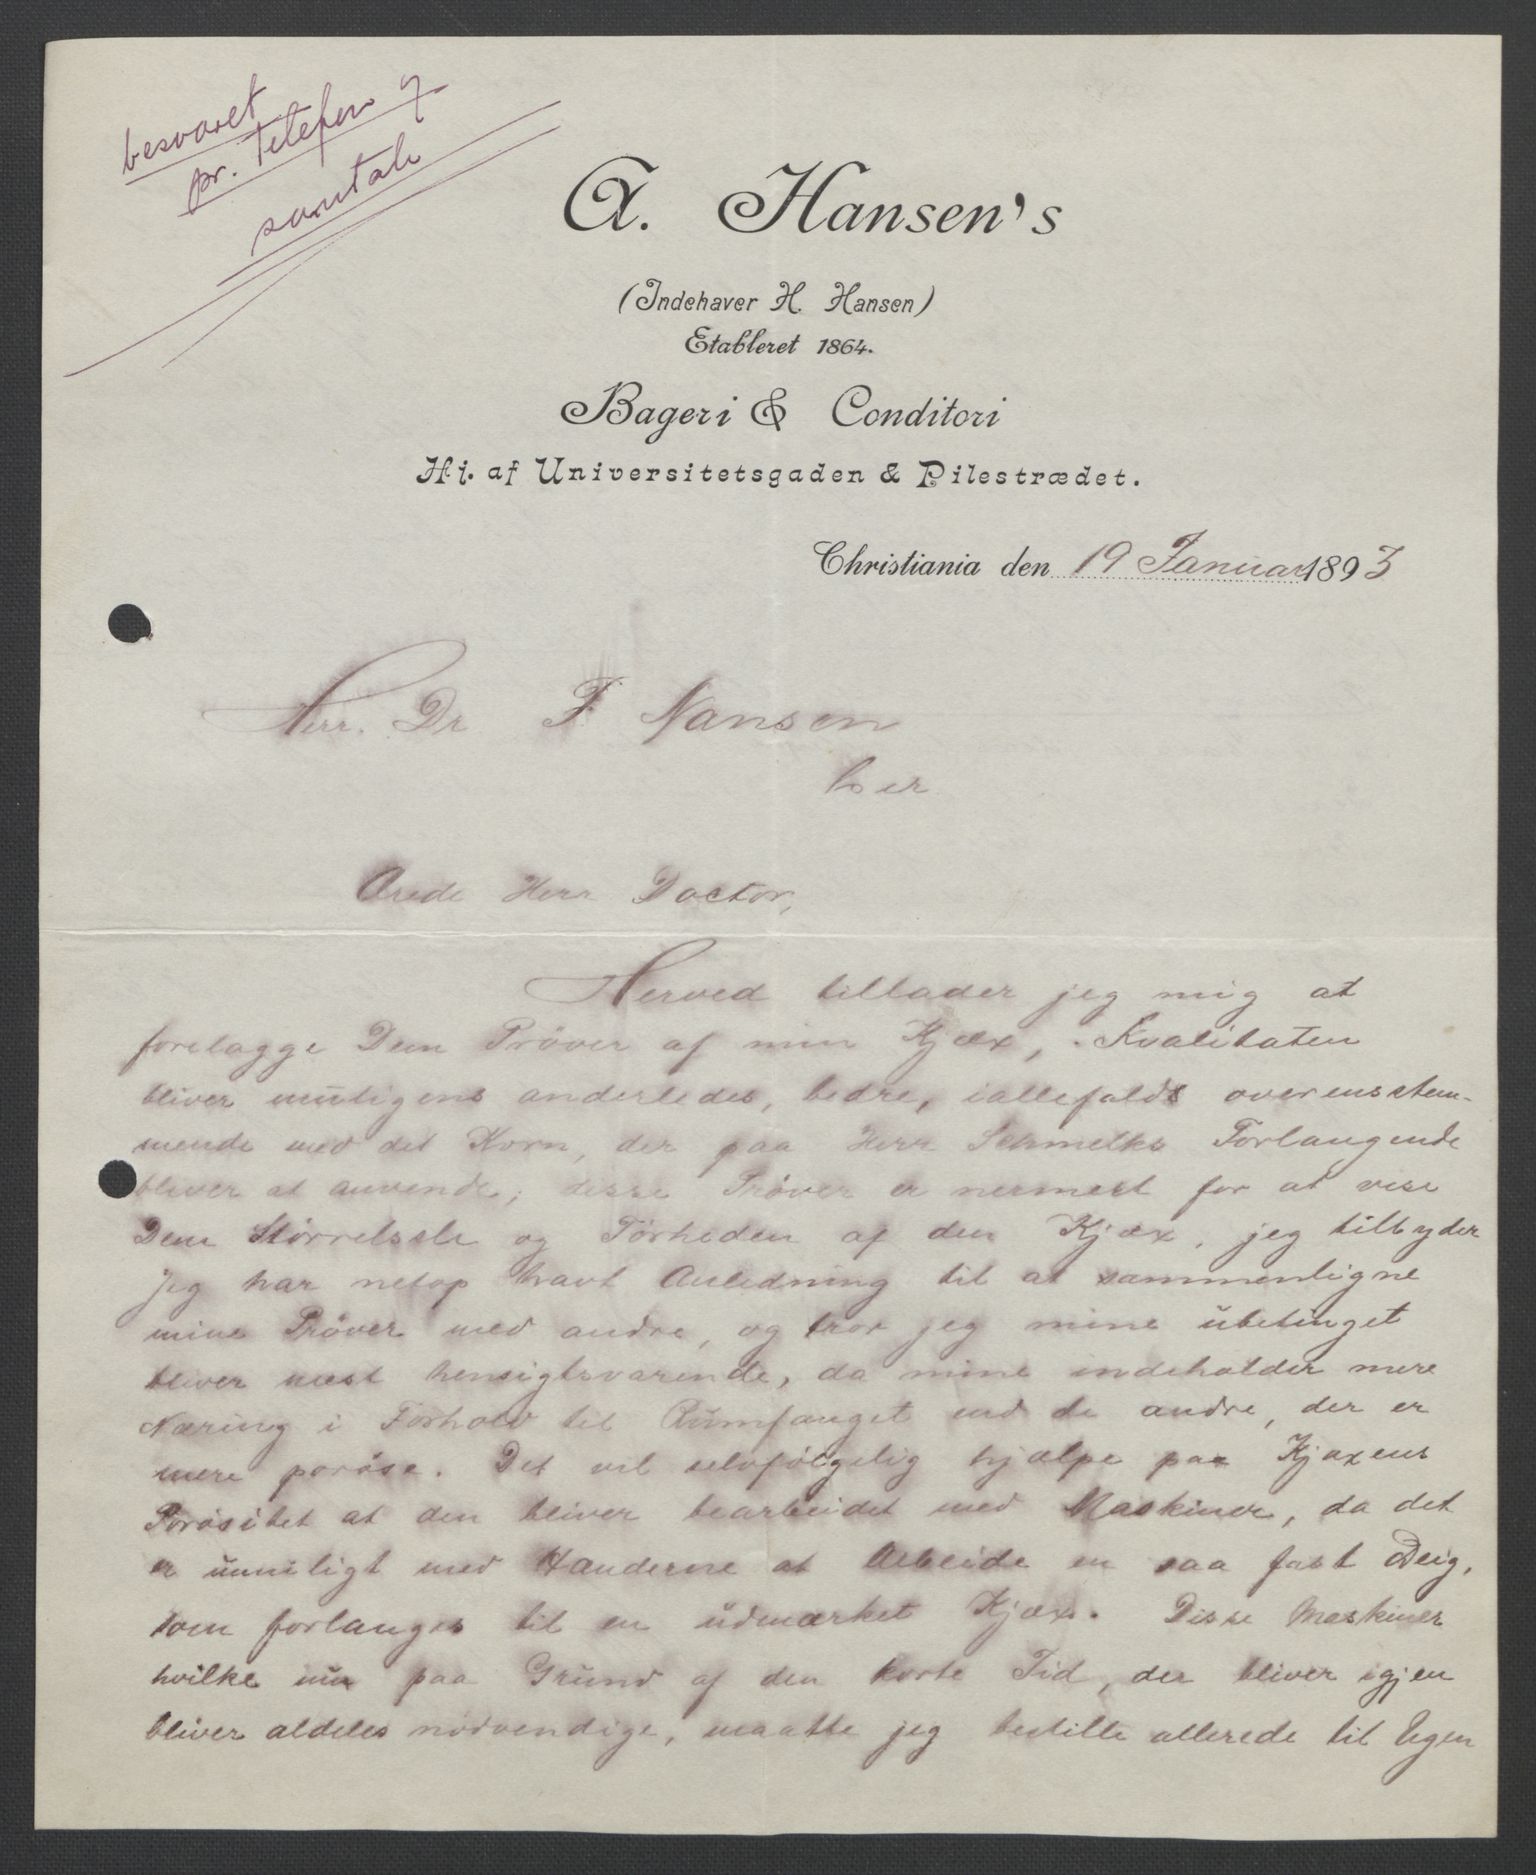 besvaret
pr. Telefon og
samtale
A. Hansen's
(Indehaver H. Hansen)
Etableret 1864.
Bageri & Conditori
Hj. af Universitetsgaden & Pilestrædet.
Christiania den 19 Januar 1893
Herr. Dr F. Nansen
her
Ærede Herr Doctor,
Herved tillader jeg mig at
forelægge Dem Pröver af min Kjæx, Kvaliteten
bliver muligens anderledes, bedre, iallefalds overensstem-
mende med det Korn, der paa Herr Schmelks Forlangende
bliver at anvende; disse Pröver er nermest for at vise
Dem Störrelsele og Törheden af den Kjæx, jeg tilbyder
Jeg har netop havt Anledning til at sammenligne
mine Pröver med andre, og tror jeg mine ubetinget
bliver mest hensigtsvarende, da mine indeholder mere
Næring i Forhold til Rumfanget end de andre, der er
mere poröse. Det vil selvfölgelig hjælpe paa Kjæxens
Porösitet at den bliver bearbeidet med Maskiner, da det
er umuligt med Hænderne at Arbeide en saa fast Deig,
som forlanges til en udmærket Kjæx. Disse Maskiner
hvilke nu paa Grund af den korte Tid, der bliver igjen
bliver aldeles nödvendige, maatte jeg bestille allerede til Egen